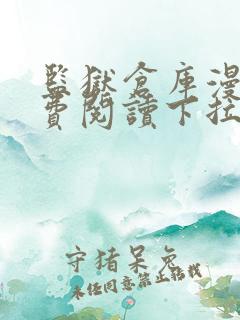 監獄倉庫漫
費閱讀下拉
守猪呆兔
未经同意禁止转载